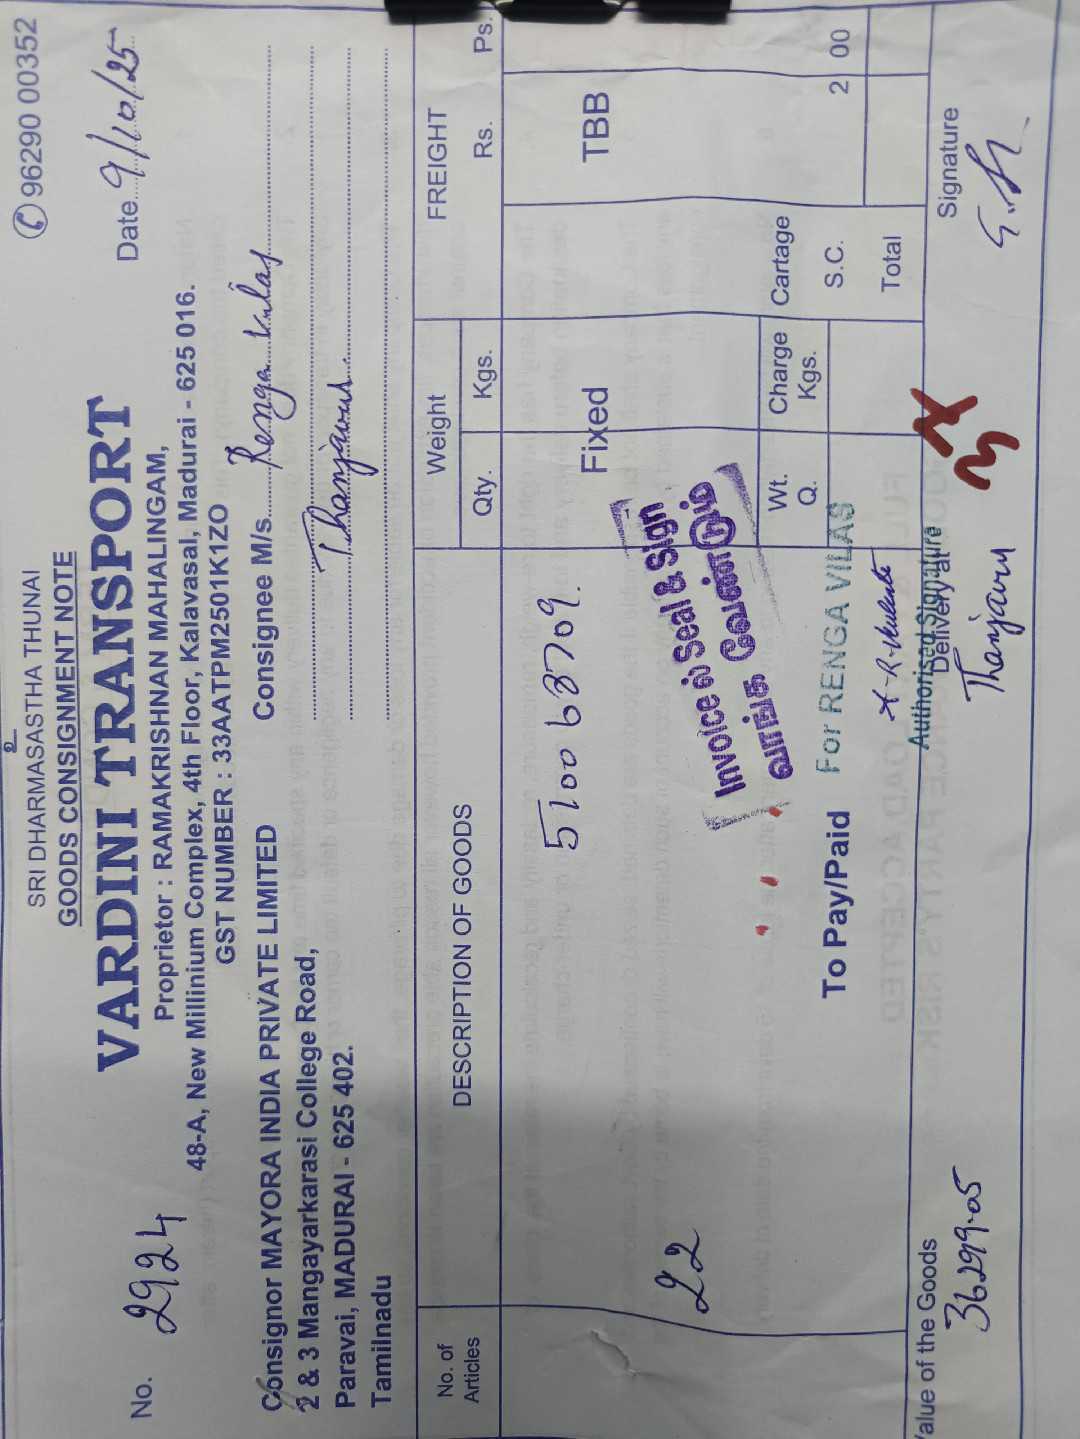 SRI DHARMASASTHA THUNAI
GOODS CONSIGNMENT NOTE
96290 00352
VARDINI TRANSPORT
No. 2924
Date 9/10/25
Proprietor : RAMAKRISHNAN MAHALINGAM,
48-A, New Millinium Complex, 4th Floor, Kalavasal, Madurai - 625 016.
GST NUMBER : 33AATPM2501K1ZO
Consignor MAYORA INDIA PRIVATE LIMITED
2 & 3 Mangayarkarasi College Road,
Paravai, MADURAI - 625 402.
Tamilnadu
Consignee M/s. Renga Vilas
Thanjavur.
No. of Articles
DESCRIPTION OF GOODS
Weight
Qty. Kgs.
FREIGHT
Rs. Ps.
5100 68709.
Fixed
TBB
22
Invoice ல் Seal & Sign
வாங்க வேண்டும்
Wt. Q.
Charge Kgs.
Cartage
S.C. 2 00
Total
To Pay/Paid
For RENGA VILAS
Authorised Signature
Value of the Goods
36299.05
Delivery at
Thanjavur
Signature